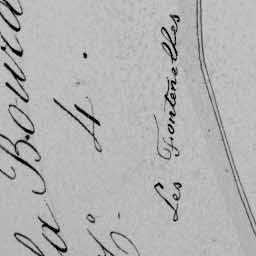 la Bour
4.
Les Fontenelles